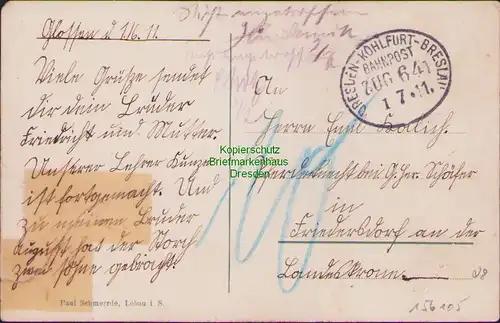 Glossen d 1/6. 11.
Viele Grüße sendet
dir dein Bruder
Friedrich und Mutter.
Unserer Lehrer Kunze
ist fortgemacht. Und
zu meinen Bruder
August hat der Storch
zwei Söhne gebracht.
Paul Schmerrde, Löbau i. S.
DRESDEN-KOHLFURT-BRESLAU
BAHNPOST
ZUG 641
1 7. 11.
An
Herrn Emil
Pferdeknecht bei G. Schäfer
in
Friedersdorf an der
Landeskrone
Kopierschutz
Briefmarkenhaus
Dresden
156105